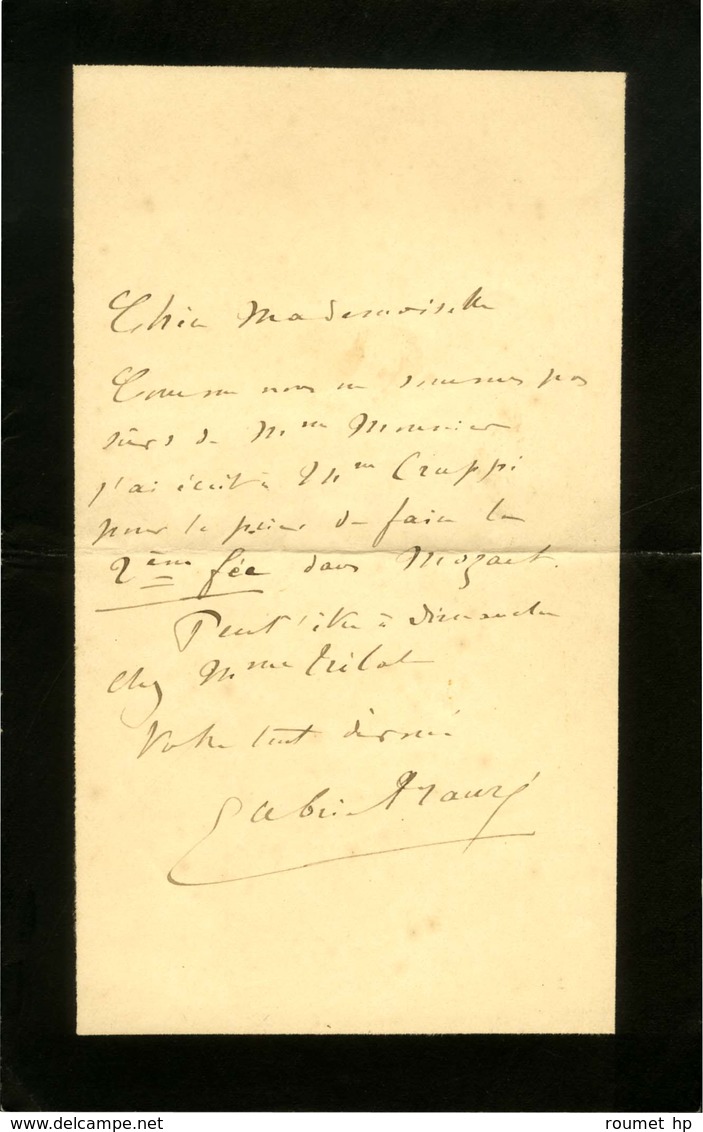 Chère Mademoiselle
Comme nous ne sommes pas
sûrs de Mme Monnier
j'ai écrit à Mme Cruppi
pour la prier de faire la
2ème fée dans Mozart.
Peut'être à dimanche
chez Mme Trélat
Votre tout dévoué
Gabriel Fauré
www.delcampe.net
roumet hp